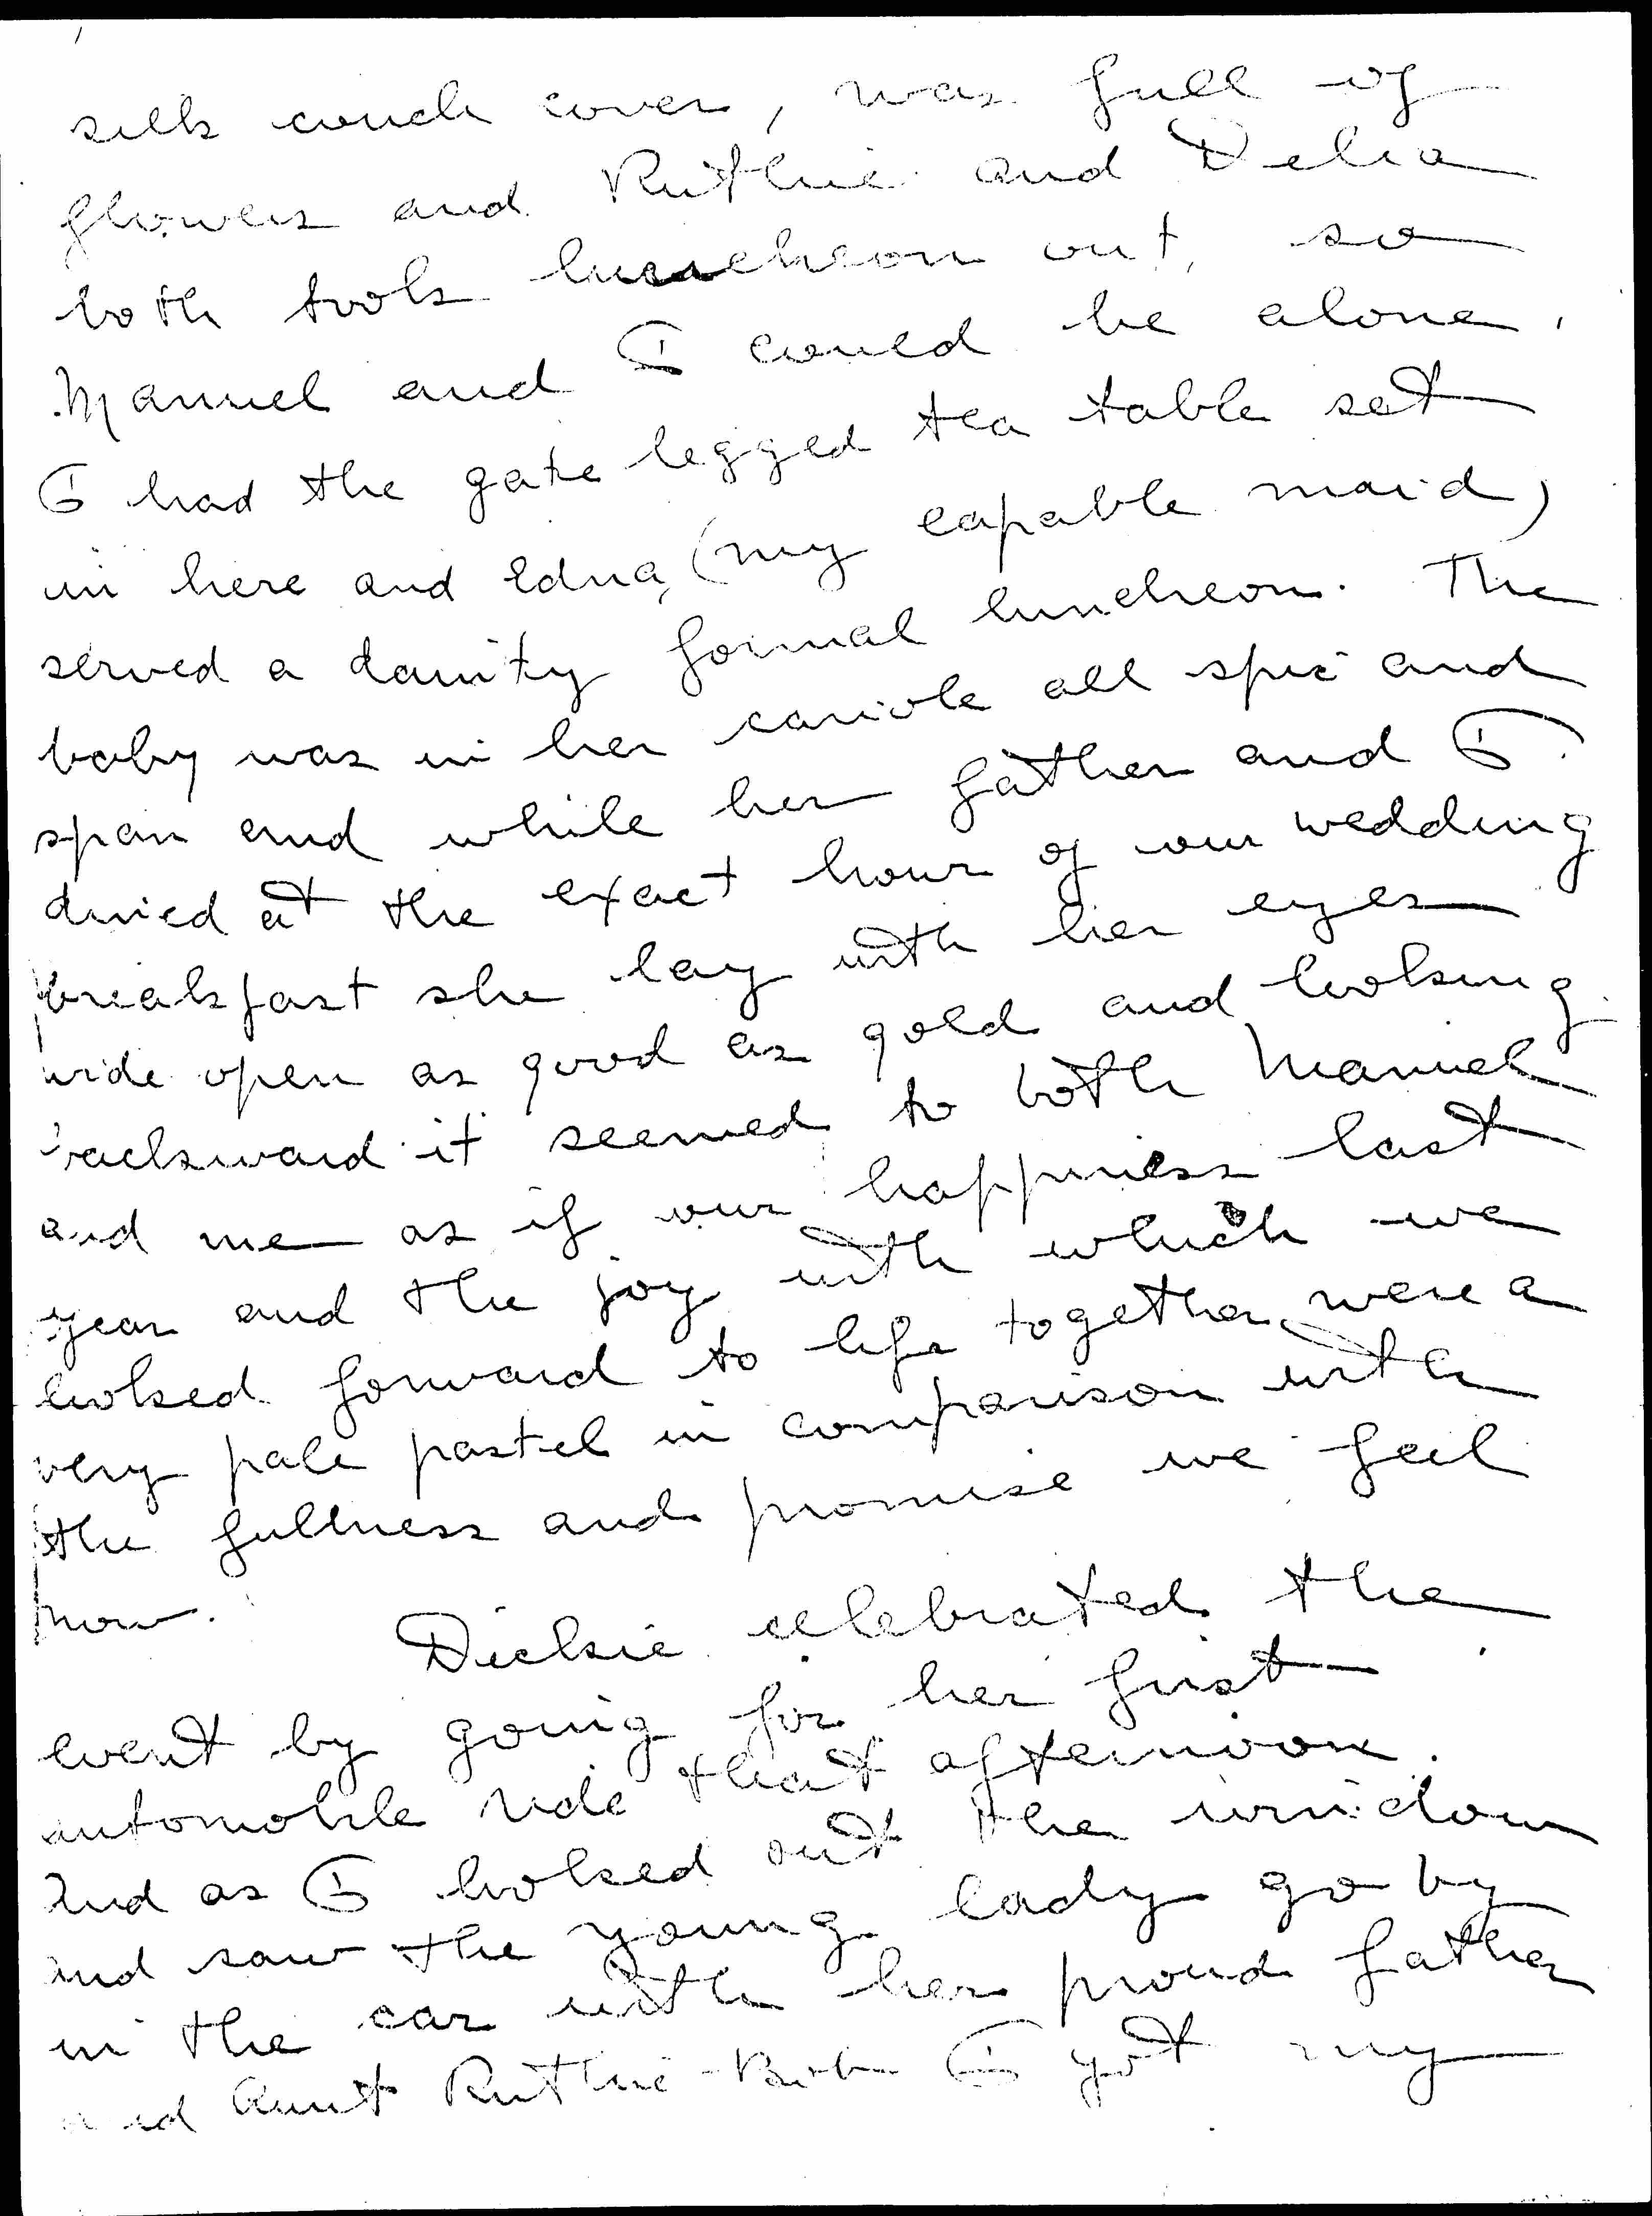 silk couch cover, was full of
flowers and Ruthie and Delia
both took luncheon out, so
Manuel and I could be alone.
I had the gate legged tea table set
in here and Edna, (my capable maid)
served a dainty formal luncheon. The
baby was in her cariole all spic and
span and while her father and I
dined at the exact hour of our wedding
breakfast she lay with her eyes
wide open as good as gold and looking
backward it seemed to both Manuel
and me as if our happiness last
year and the joy with which we
looked forward to life together, were a
very pale pastel in comparison with
the fullness and promise we feel
now.
Dickie celebrated the
event by going for her first
automobile ride that afternoon.
And as I looked out the window
and saw the young lady go by
in the car with her proud father
and Aunt Ruthie-Bob I got my